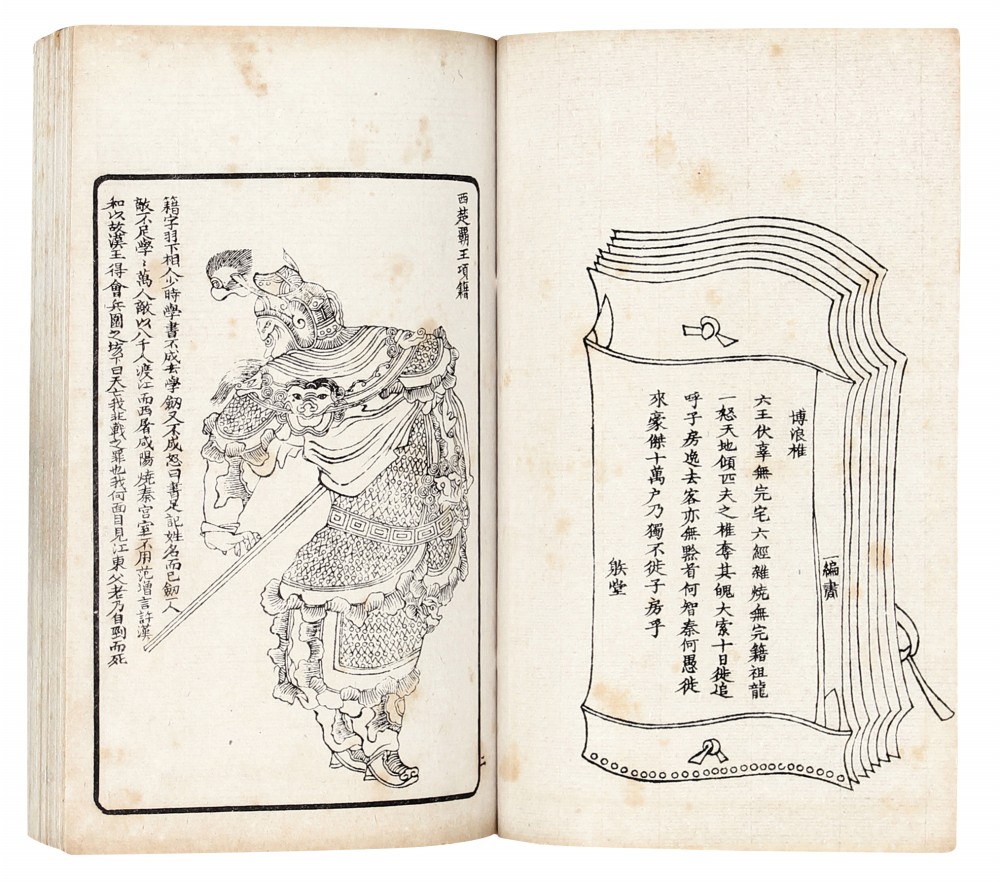 一編書
博浪椎
六王伏辜無完宅六經雜燒無完籍祖龍
一怒天地傾匹夫之椎奪其魄大索十日徒追
呼子房逸去客亦無黔首何智秦何愚徙
來豪傑十萬户乃獨不徙子房乎
堂
西楚霸王項籍
籍字羽下相人少時學書不成去學劒又不成怒曰書足記姓名而已劒一人
敵不足學〻萬人敵以八千人渡江而西屠咸陽燒秦宮室不用范增言許漢
和以故漢王得會兵圍之垓下曰天亡我非戰之罪也我何面目見江東父老乃自剄而死